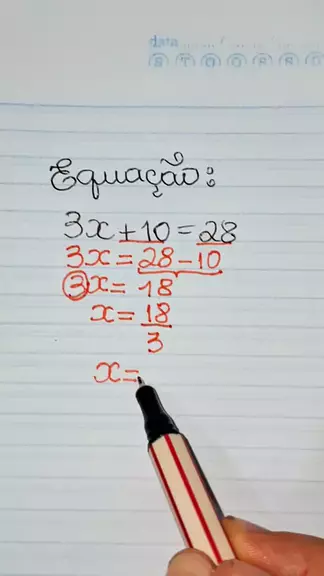 data ...... / ......
S T Q Q S S D
Equação:
3x + 10 = 28
3x = 28 - 10
3x = 18
x = 18
3
x =